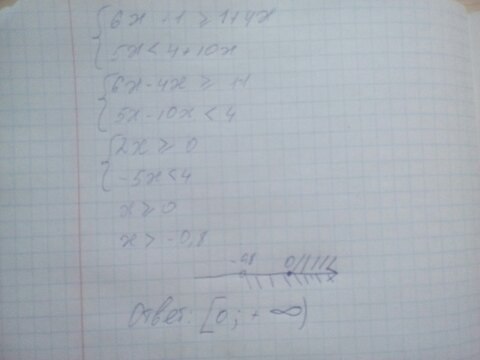 { 6x + 1 ≥ 1 + 4x
5x < 4 + 10x
{ 6x - 4x ≥ 1-1
5x - 10x < 4
{ 2x ≥ 0
-5x < 4
x ≥ 0
x > -0,8
-0,8 0
Ответ: [0; +∞)